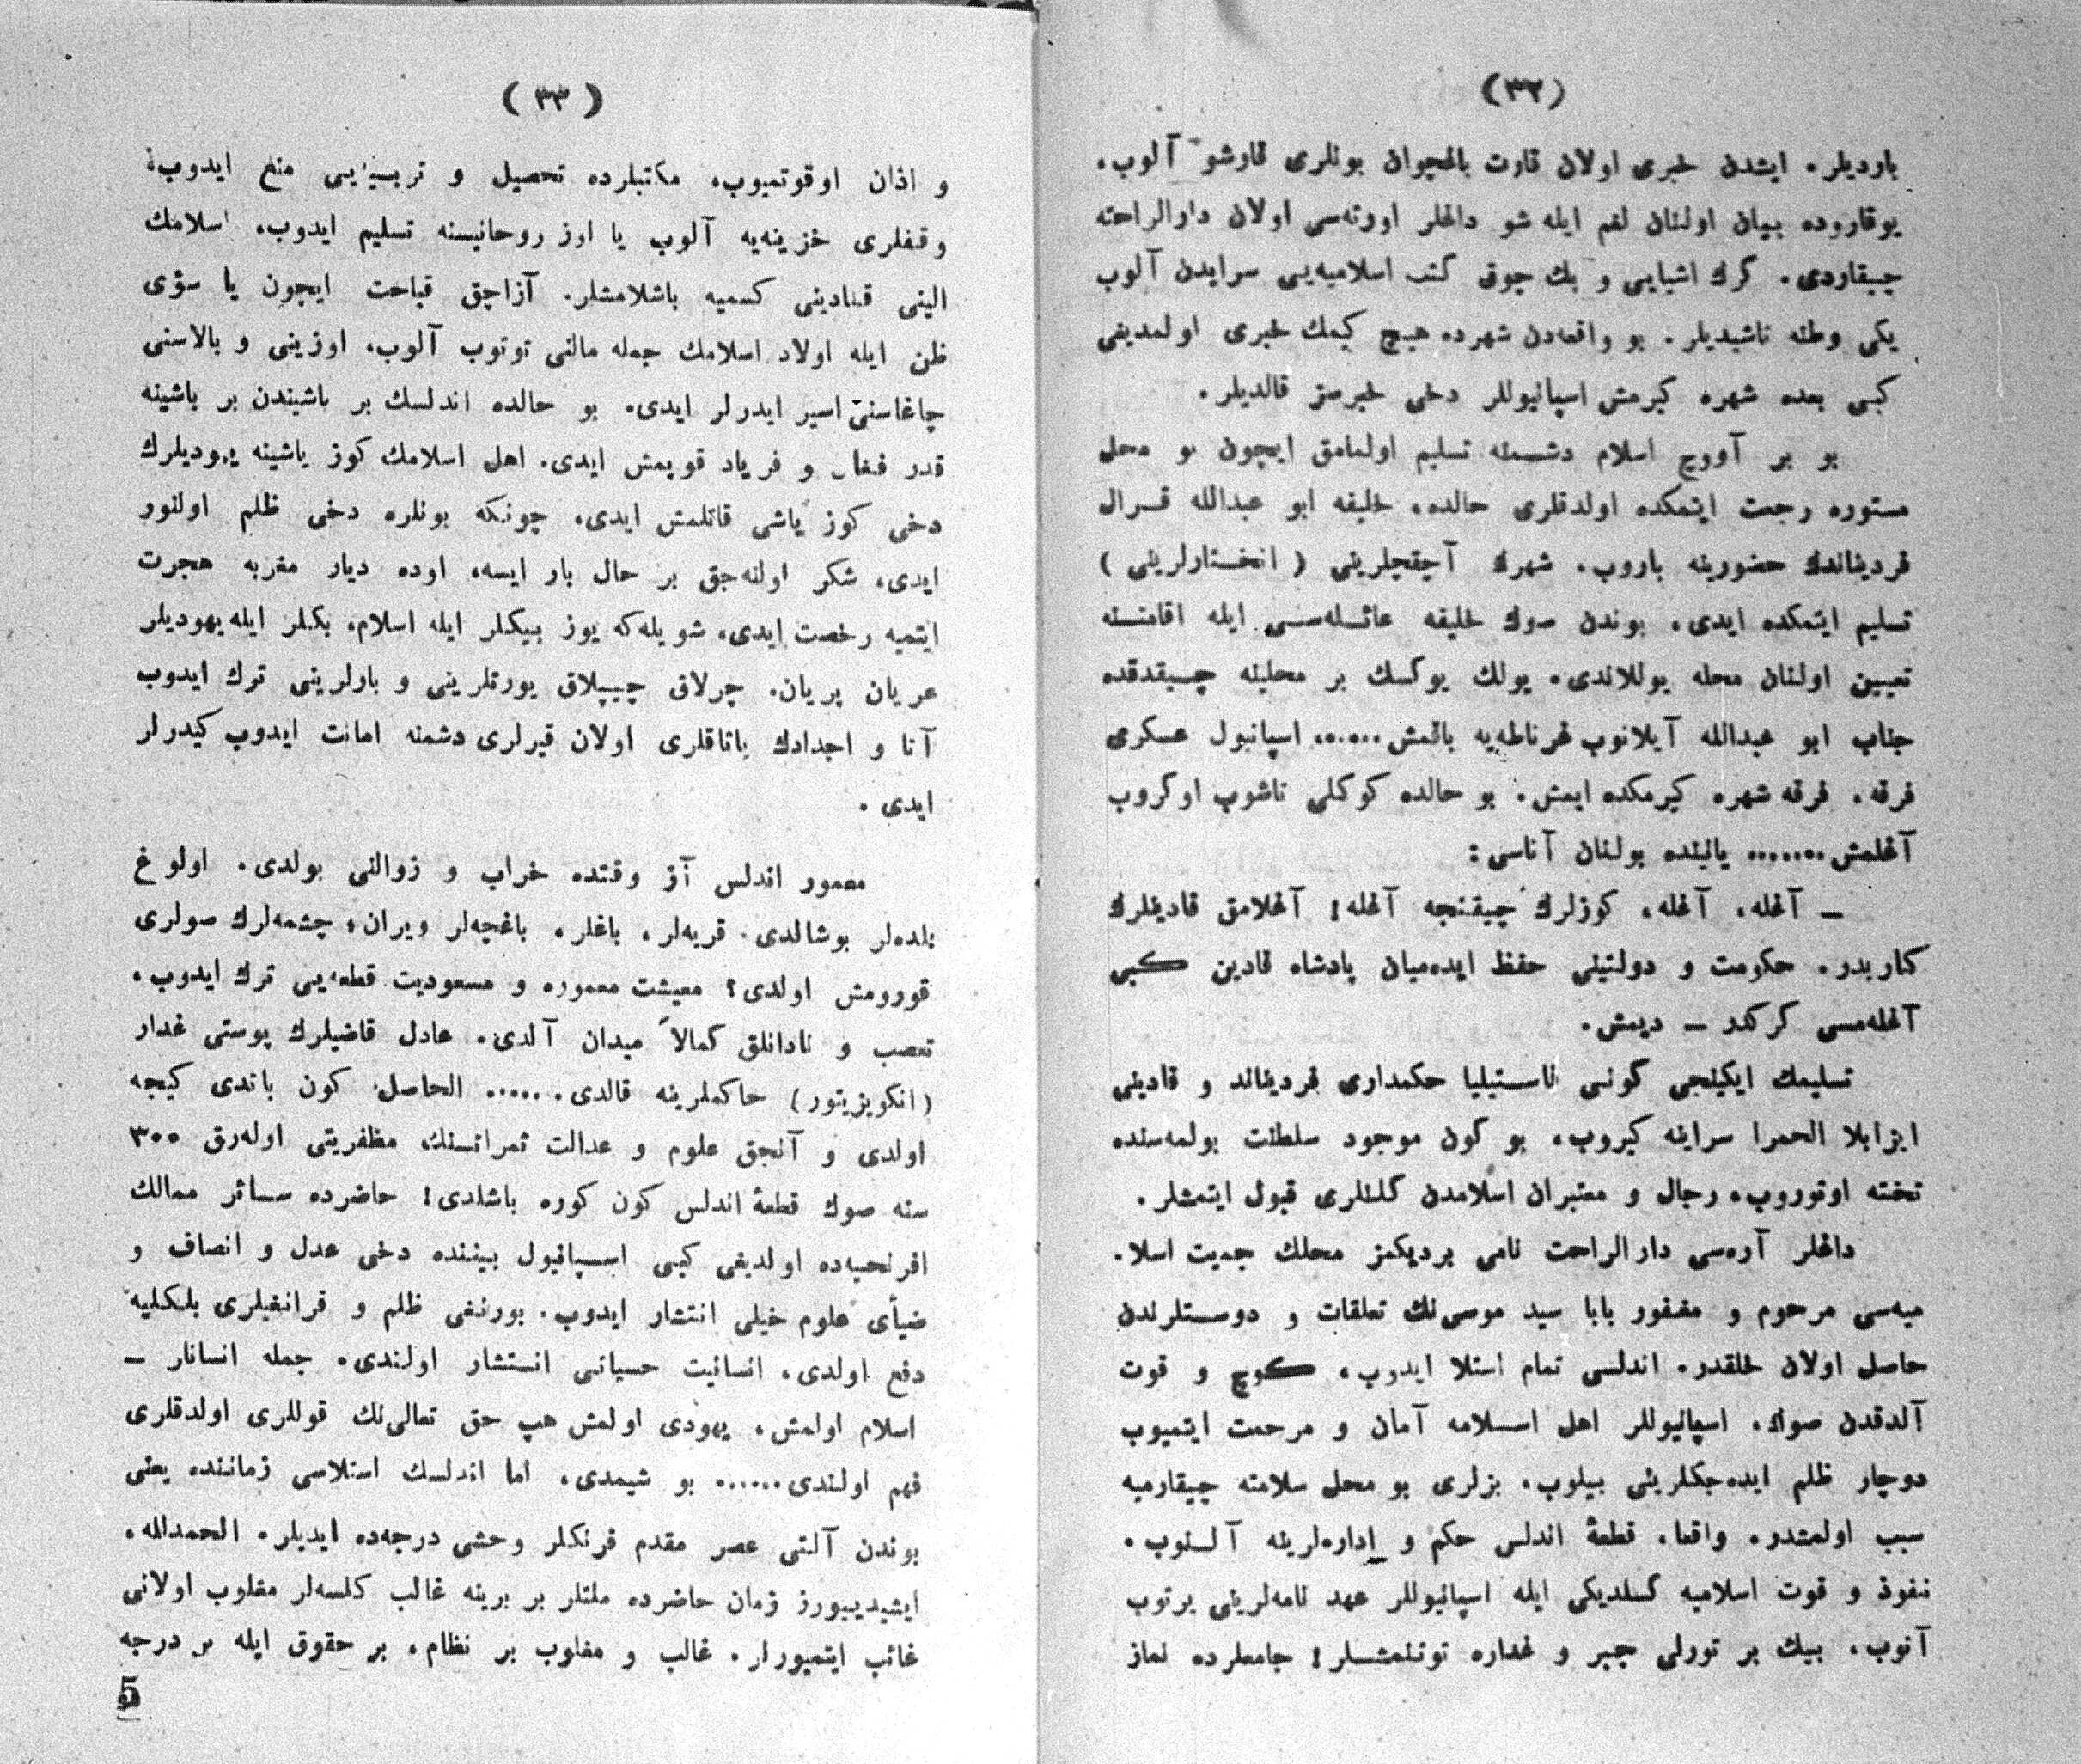 (٣٢)
بارديلر. ايشدن خبرى اولان قارت باغچوان بونلرى قارشو آلوب،
يوقاروده بيان اولنان لغم ايله شو داغلر اورته‌سى اولان دارالراحته
چيقاردى. كرك اشيايى و بك چوق كتب اسلاميه‌يى سرايدن آلوب
يكى وطنه تاشيديلر. بو واقعه‌دن شهرده هيچ كيمك خبرى اولمديغى
كبى بعده شهره كيرمش اسپانيوللر دخى خبرسز قالديلر.
بو بر آووچ اسلام دشمنه تسليم اولمامق ايچون بو محل
مستوره رجعت ايتمكده اولدقلرى حالده، خليفه ابو عبدالله قرال
فرديناندك حضورينه باروب، شهرك آچقچلرينى (انخستارلرينى)
تسليم ايتمكده ايدى. بوندن صوك خليفه عائله‌سى ايله اقامتنه
تعيين اولنان محله يوللاندى. يولك يوكسك بر محلينه چيقدقده
جناب ابو عبدالله آيلانوب غرناطه‌يه باقمش...... اسپانيول عسكرى
فرقه، فرقه شهره كيرمكده ايمش. بو حالده كوكلى تاشوب اوكروب
آغلمش....... يانينده بولنان آناسى:
— آغله، آغله، كوزلرك چيقنجه آغله! آغلامق قادينلرك
كاريدر. حكومت و دولتينى حفظ ايده‌ميان پادشاه قادين كبى
آغله‌مسى كركدر — ديمش.
تسليمك ايكينجى كونى قاستيليا حكمدارى فرديناند و قادينى
ايزابلا الحمرا سراينه كيروب، بو كون موجود سلطنت بولمه‌سنده
تخته اوتوروب، رجال و معتبران اسلامدن كلنلرى قبول ايتمشلر.
داغلر آره‌سى دارالراحت نامى برديكمز محلك جمعيت اسلا.
ميه‌سى مرحوم و مغفور بابا سيد موسى‌نك تعلقات و دوستلرندن
حاصل اولان خلقدر. اندلسى تمام استلا ايدوب، كوچ و قوت
آلدقدن صوك، اسپانيوللر اهل اسلامه آمان و مرحمت ايتميوب
دوچار ظلم ايده‌جكلرينى بيلوب، بزلرى بو محل سلامته چيقارميه
سبب اولمشدر. واقعا، قطعۀ اندلس حكم و اداره‌لرينه آلنوب،
نفوذ و قوت اسلاميه كسلديكى ايله اسپانيوللر عهد نامه‌لرينى يرتوب
آتوب، بيك بر تورلى جبر و غداره توتنمشلر! جامعلرده نماز
(٣٣)
و اذان اوقوتميوب، مكتبلرده تحصيل و تربيه‌يى منع ايدوب،
وقفلرى خزينه‌يه آلوب يا اوز روحانيسنه تسليم ايدوب، اسلامك
الينى قنادينى كسميه باشلامشلر. آزاچق قباحت ايچون يا سؤى
ظن ايله اولاد اسلامك جمله مالنى توتوب آلوب، اوزينى و بالاسنى
چاغاسنى اسير ايدرلر ايدى. بو حالده اندلسك بر باشيندن بر باشينه
قدر فغان و فرياد قوپمش ايدى. اهل اسلامك كوز ياشينه يهوديلرك
دخى كوز ياشى قاتلمش ايدى، چونكه بونلره دخى ظلم اولنور
ايدى، شكر اولنه‌جق بر حال بار ايسه، اوده ديار مغربه هجرت
ايتميه رخصت ايدى، شويله‌كه يوز بيكلر ايله اسلام، بكلر ايله يهوديلر
عريان پريان، چرلاق چيپلاق يورتلرينى و بارلرينى ترك ايدوب
آتا و اجدادك ياتاقلرى اولان قبرلرى دشمنه امانت ايدوب كيدرلر
ايدى.
معمور اندلس آز وقتده خراب و زوالنى بولدى. اولوغ
بلده‌لر بوشالدى. قريه‌لر، باغلر، باغچه‌لر ويران، چشمه‌لرك صولرى
قورومش اولدى؟ معيشت معموره و مسعوديت قطعه‌يى ترك ايدوب،
تعصب و نادانلق كمالاً ميدان آلدى. عادل قاضيلرك پوستى غدار
(انكويزيتور) حاكملرينه قالدى....... الحاصل كون باتدى كيجه
اولدى و آنجق علوم و عدالت ثمراتسنك مظفريتى اوله‌رق ٣٠٠
سنه صوك قطعۀ اندلس كون كوره باشلدى! حاضرده سائر ممالك
افرنجيه‌ده اولديغى كبى اسپانيول بيننده دخى عدل و انصاف و
ضيأى علوم خيلى انتشار ايدوب، بورنغى ظلم و قرانغيلرى بلكليه
دفع اولدى، انسانيت حسياتى انتشار اولندى. جمله انسانلر —
اسلام اولمش، يهودى اولمش هپ حق تعالى‌نك قوللرى اولدقلرى
فهم اولندى...... بو شيمدى، اما اندلسك استلاسى زماننده يعنى
بوندن آلتى عصر مقدم فرنكلر وحشى درجه‌ده ايديلر. الحمدالله،
ايشيديبورز زمان حاضرده ملتلر بر برينه غالب كلسه‌لر مغلوب اولانى
غائب ايتميورلر. غالب و مغلوب بر نظام، بر حقوق ايله بر درجه
5